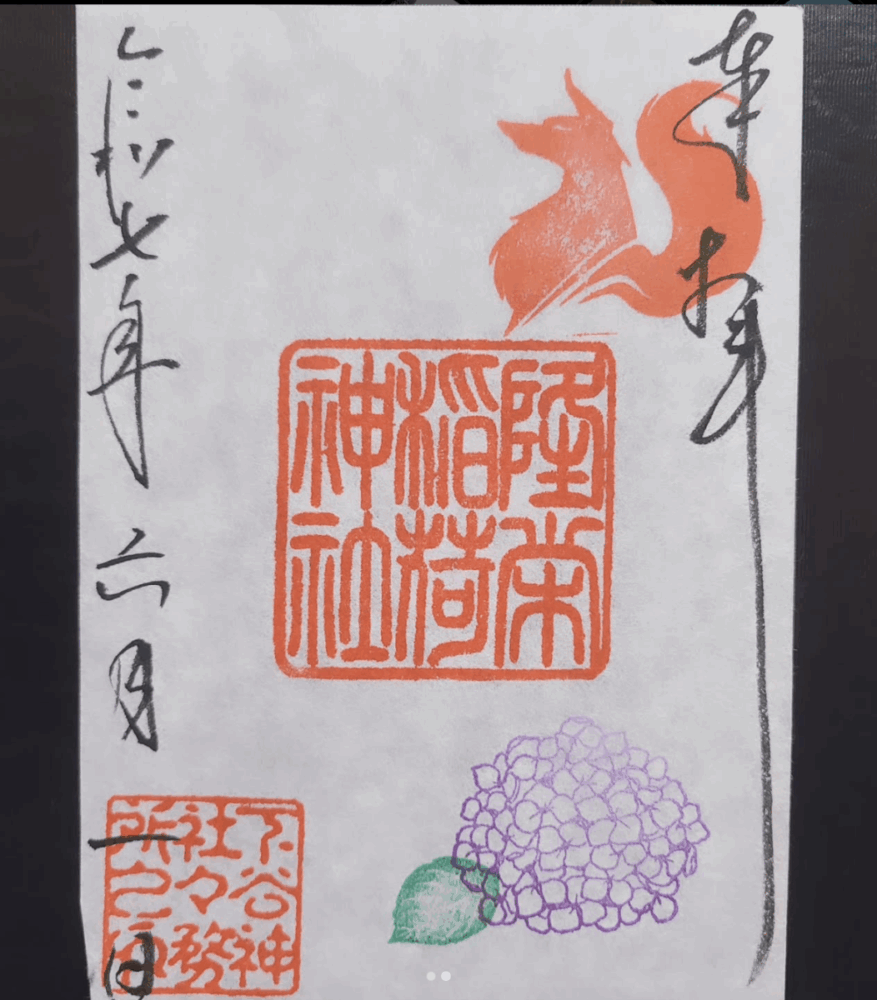 奉拝
隆栄
稲荷
神社
令和七年六月一日
下谷神
社々務
所之印